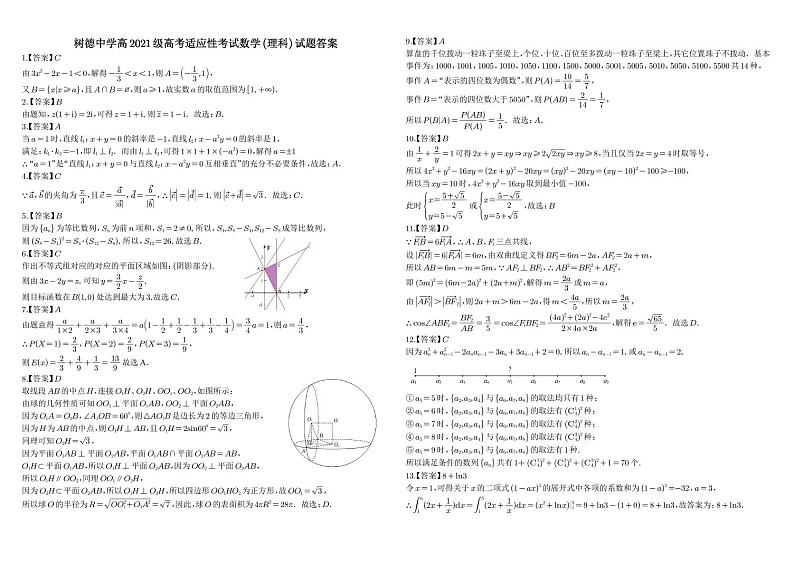 树德中学高 2021 级高考适应性考试数学 (理科) 试题答案
1.【答案】C
由 3x²－2x－1＜0,解得－1/3＜x＜1,则 A＝(－1/3,1),
又 B＝{x|x⩾a},且 A∩B＝∅,则 a⩾1,故实数 a 的取值范围为 [1,＋∞).
2.【答案】B
由题知, z(1＋i)＝2i,可得 z＝1＋i, 则 z̄＝1－i. 故选: B.
3.【答案】A
当 a＝1 时,直线 l₁: x＋y＝0 的斜率是－1,直线 l₂: x－a²y＝0 的斜率是 1,
满足: k₁·k₂＝－1,即 l₁⊥l₂. 而由 l₁⊥l₂,可得 1×1＋1×(－a²)＝0,解得 a＝±1
∴“a＝1”是“直线 l₁: x＋y＝0 与直线 l₂: x－a²y＝0 互相垂直”的充分不必要条件,故选: A.
4.【答案】C
∵a⃗,b⃗的夹角为 π/3,且 c⃗＝a⃗/|a⃗|, d⃗＝b⃗/|b⃗|, ∴|c⃗|＝|d⃗|＝1, 则 |c⃗＋d⃗|＝√3. 故选: C.
5.【答案】B
因为 {aₙ} 为等比数列, Sₙ 为前 n 项和, S₄＝2≠0, 所以, S₄,S₈－S₄,S₁₂－S₈ 成等比数列,
则 (S₈－S₄)²＝S₄·(S₁₂－S₈), 所以, S₁₂＝26. 故选 B.
6.【答案】C
作出不等式组对应的对应的平面区域如图: (阴影部分).
则由 3x－2y＝z, 可知 y＝3/2x－z/2.
则目标函数在 B(1,0) 处达到最大为 3.故选 C.
7.【答案】A
由题意得 a/(1×2)＋a/(2×3)＋a/(3×4)＝a(1－1/2＋1/2－1/3＋1/3－1/4)＝3/4a＝1,则 a＝4/3.
∴P(X＝1)＝2/3, P(X＝2)＝2/9, P(X＝3)＝1/9,
则 E(x)＝2/3＋4/9＋1/3＝13/9 故选 A.
8.【答案】D
取线段 AB 的中点 H,连接 O₁H、O₂H、OO₁、OO₂,如图所示:
由球的几何性质可知 OO₁⊥平面 O₁AB, OO₂⊥平面 O₂AB,
因为 O₁A＝O₁B,∠AO₁B＝60°,则△AO₁B 是边长为 2 的等边三角形,
因为 H 为 AB 的中点,则 O₁H⊥AB,且 O₁H＝2sin60°＝√3,
同理可知 O₂H＝√3,
因为平面 O₁AB⊥平面 O₂AB,平面 O₁AB∩平面 O₂AB＝AB,
O₁H⊂平面 O₁AB,所以 O₁H⊥平面 O₂AB,因为 OO₂⊥平面 O₂AB,
所以 O₁H∥OO₂,同理 OO₁∥O₂H,
因为 O₂H⊂平面 O₂AB,所以 O₁H⊥O₂H,所以四边形 OO₁HO₂ 为正方形,故 OO₁＝√3,
所以球 O 的半径为 R＝√(OO₁²＋O₁A²)＝√7,因此,球 O 的表面积为 4πR²＝28π. 故选: D.
9.【答案】A
算盘的千位拨动一粒珠子至梁上,个位、十位、百位至多拨动一粒珠子至梁上,其它位置珠子不拨动. 基本
事件为: 1000, 1001, 1005, 1010, 1050, 1100, 1500, 5000, 5001, 5005, 5010, 5050, 5100, 5500 共 14 种,
事件 A＝“表示的四位数为偶数”,则 P(A)＝10/14＝5/7,
事件 B＝“表示的四位数大于 5050”,则 P(AB)＝2/14＝1/7,
所以 P(B|A)＝P(AB)/P(A)＝1/5. 故选: A.
10.【答案】B
由 1/x＋2/y＝1 可得 2x＋y＝xy⇒xy⩾2√(2xy)⇒xy⩾8,当且仅当 2x＝y＝4 时取等号,
所以 4x²＋y²－16xy＝(2x＋y)²－20xy＝(xy)²－20xy＝(xy－10)²－100⩾－100,
所以当 xy＝10 时, 4x²＋y²－16xy 取到最小值－100,
此时 {x＝(5＋√5)/2, y＝5－√5 或 {x＝(5－√5)/2, y＝5＋√5 ,故选: B
11.【答案】D
∵F₁B⃗＝6F₁A⃗,∴A、B、F₁ 三点共线,
设 |F₁B⃗|＝6|F₁A⃗|＝6m,由双曲线定义得 BF₂＝6m－2a, AF₂＝2a＋m,
所以 AB＝6m－m＝5m, ∵AF₂⊥BF₂, ∴AB²＝BF₂²＋AF₂²,
即 (5m)²＝(6m－2a)²＋(2a＋m)²,解得 m＝2a/3 或 m＝a,
由 |AF₂⃗|＞|BF₂⃗|,则 2a＋m＞6m－2a,得 m＜4a/5,所以 m＝2a/3,
∴cos∠ABF₂＝BF₂/AB＝3/5＝cos∠F₁BF₂＝((4a)²＋(2a)²－4c²)/(2×4a×2a),解得 e＝√65/5. 故选 D.
12.【答案】C
因为 aₙ²＋aₙ₋₁²－2aₙaₙ₋₁－3aₙ＋3aₙ₋₁＋2＝0, 所以 aₙ－aₙ₋₁＝1,或 aₙ－aₙ₋₁＝2,
1 ?
a₁ a₂ a₃ a₄ a₅ a₆ a₇ a₈ a₉
① a₅＝5 时, {a₂,a₃,a₄} 与 {a₆,a₇,a₈} 的取法均只有 1 种;
② a₅＝6 时, {a₂,a₃,a₄} 与 {a₆,a₇,a₈} 的取法有 (C₄¹)² 种;
③ a₅＝7 时, {a₂,a₃,a₄} 与 {a₆,a₇,a₈} 的取法有 (C₄²)² 种;
④ a₅＝8 时, {a₂,a₃,a₄} 与 {a₆,a₇,a₈} 的取法有 (C₄³)² 种;
⑤ a₅＝9 时, {a₂,a₃,a₄} 与 {a₆,a₇,a₈} 的取法有 1 种.
所以满足条件的数列 {aₙ} 共有 1＋(C₄¹)²＋(C₄²)²＋(C₄³)²＋1＝70 个.
13.【答案】8＋ln3
令 x＝1,可得关于 x 的二项式 (1－ax)⁵ 的展开式中各项的系数和为 (1－a)⁵＝－32, a＝3,
∴∫₁ᵃ(2x＋1/x)dx＝∫₁³(2x＋1/x)dx＝(x²＋lnx)|₁³＝9＋ln3－(1＋0)＝8＋ln3, 故答案为: 8＋ln3.